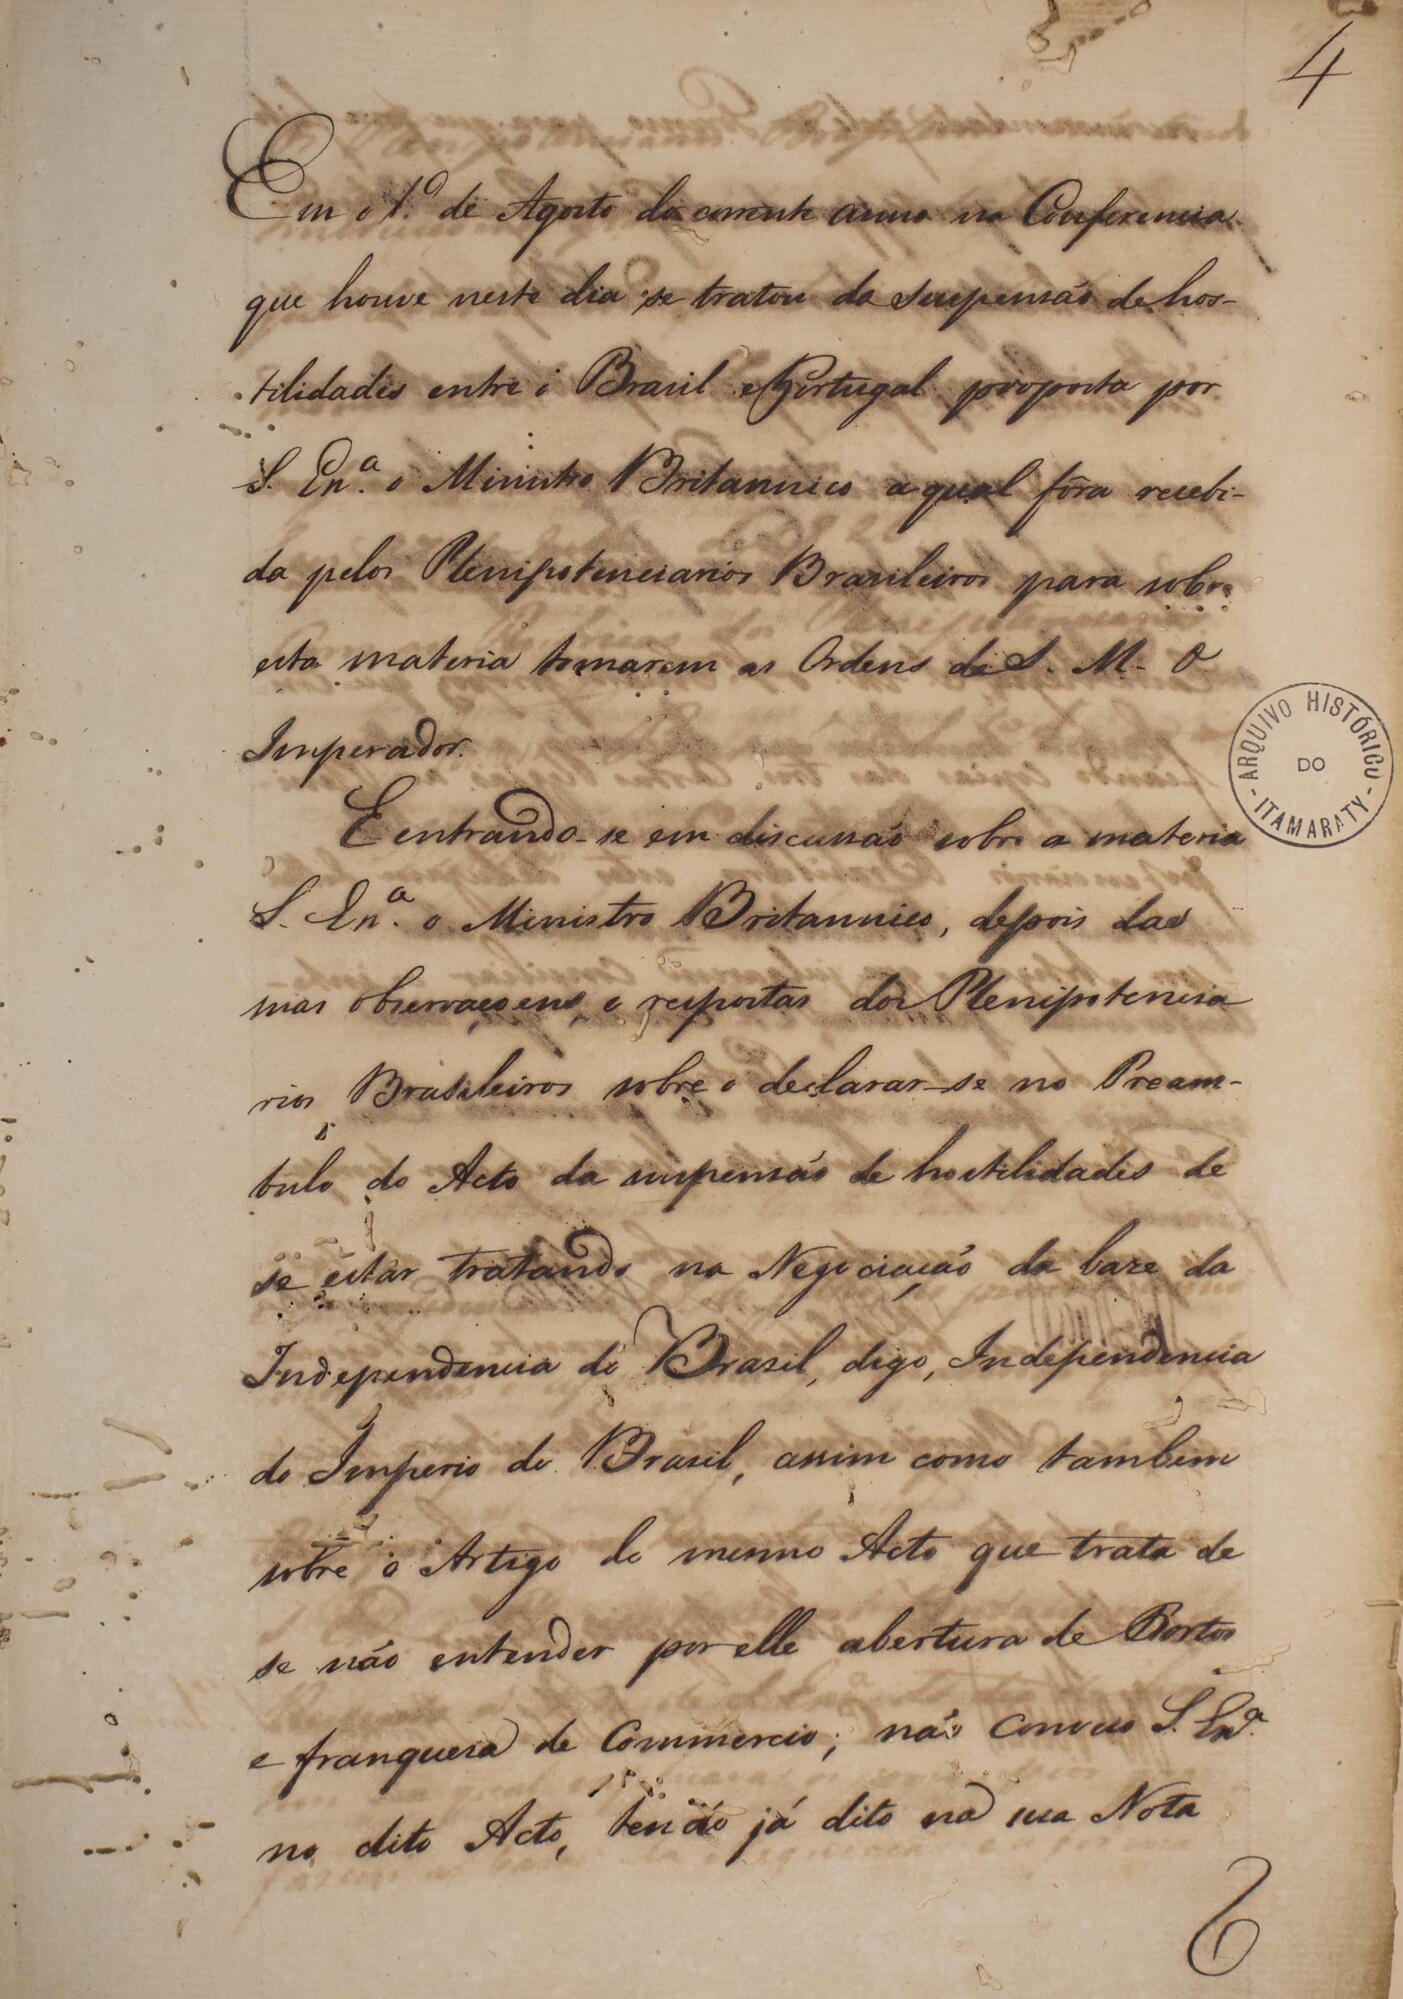 4
Em o 1.º de Agosto do corrente anno na Conferencia
que houve neste dia se tratou da suspensão de hos-
tilidades entre o Brasil e Portugal proposta por
S. Ex.ª o Ministro Britannico a qual fôra recebi-
da pelos Plenipotenciarios Brasileiros para sobre
esta materia tomarem as Ordens de S. M. O
Imperador.
E entrando-se em discussão sobre a materia
S. Ex.ª o Ministro Britannico, depois das
mas observaçoens, e respostas dos Plenipotencia
rios Brasileiros sobre o declarar-se no Pream-
bulo do Acto da suspensão de hostilidades de
se estar tratando na Negociação da baze da
Independencia do Brasil, digo, Independencia
do Imperio do Brasil, assim como tambem
sobre o Artigo do mesmo Acto que trata de
se não entender por elle abertura de Portos
e franquesa de Commercio; não conveio S. Ex.ª
no dito Acto, tendo já dito na sua Nota
ARQUIVO HISTÓRICO
DO
- ITAMARATY -